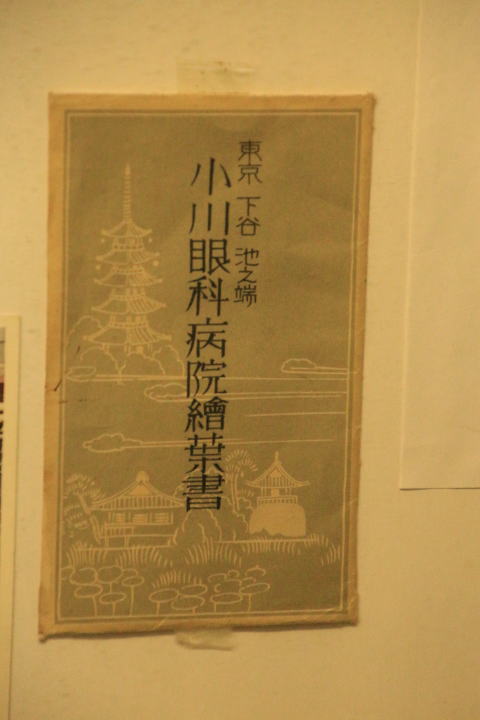 東京 下谷 池之端
小川眼科病院繪葉書